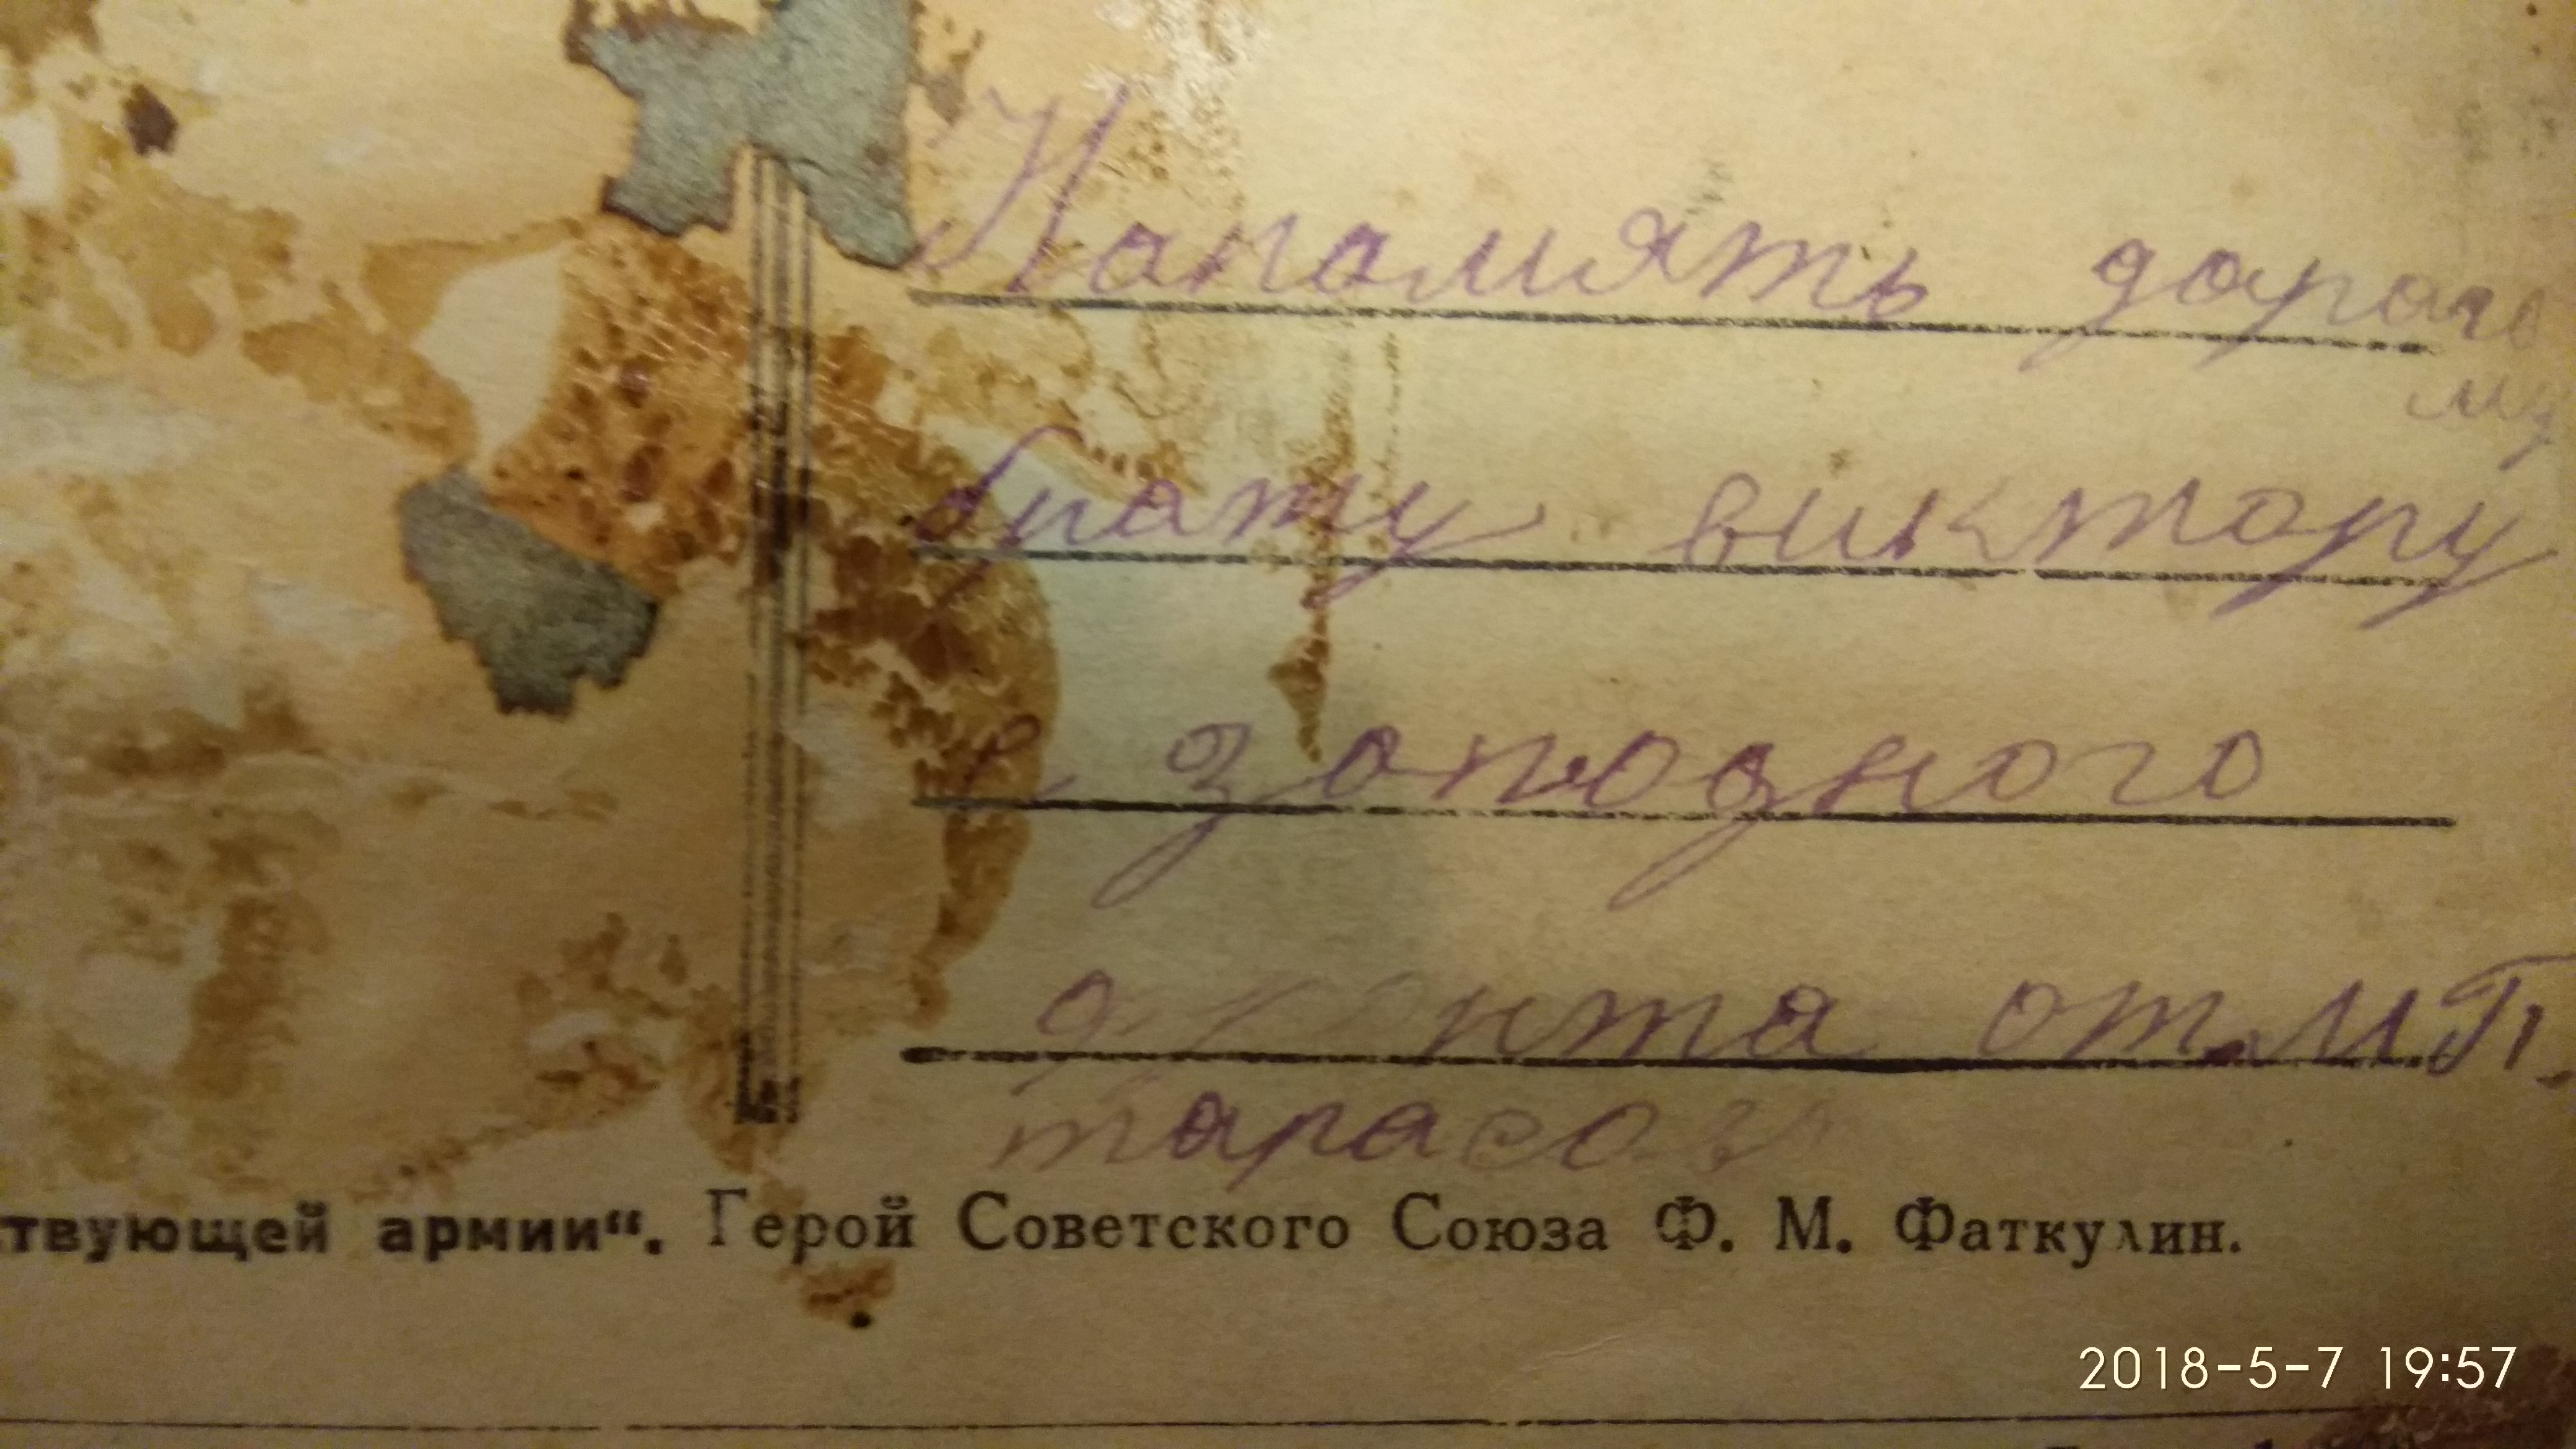 Напомять дорого
му
брату виктору
с зоподного
фронта от М П.
тарасов
твующей армии“. Герой Советского Союза Ф. М. Фаткулин.
2018-5-7 19:57